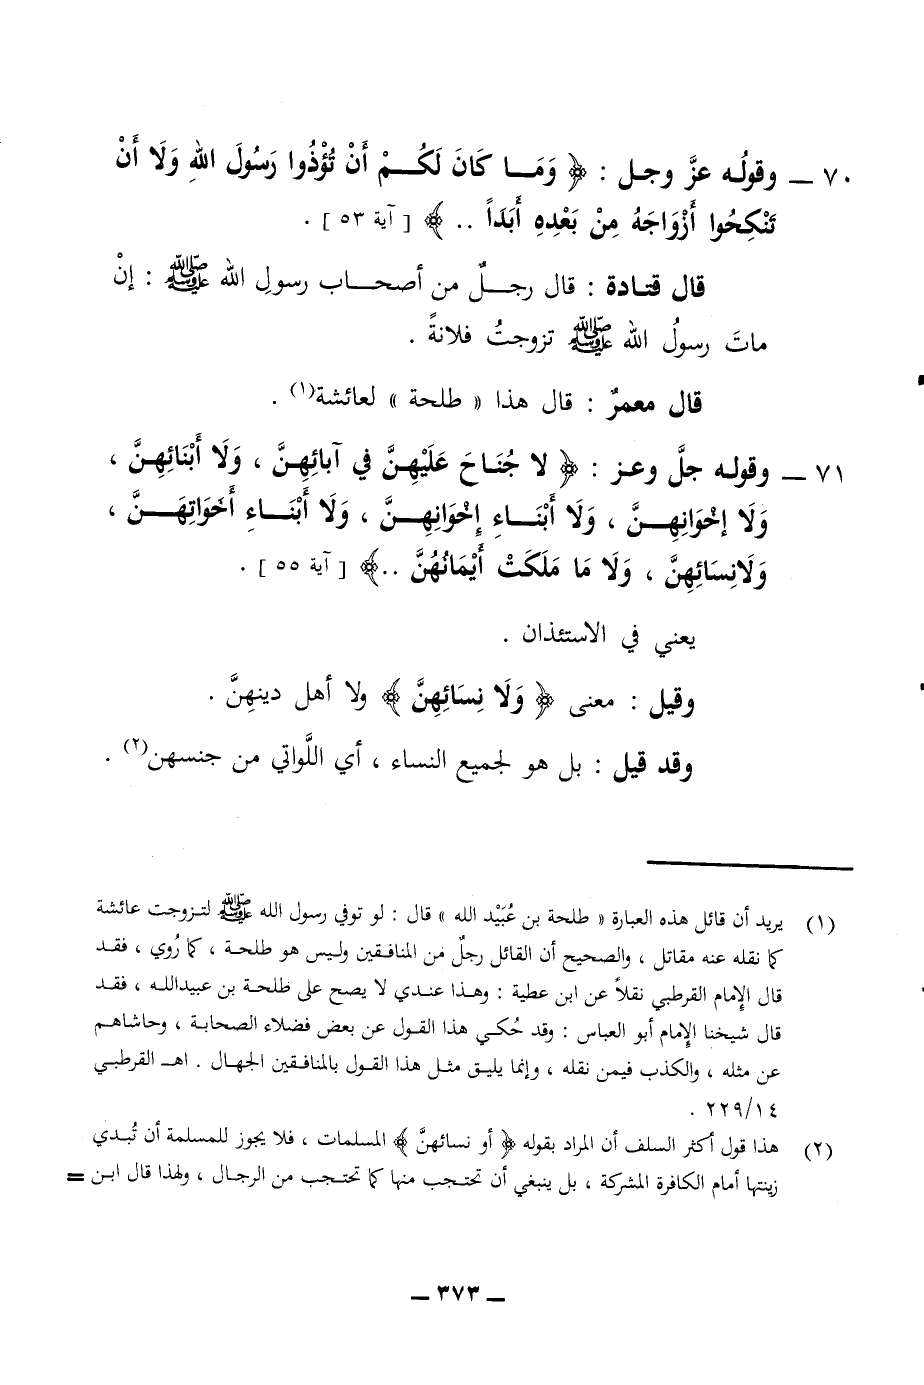 ٧٠ ــ وقولُه عزَّ وجل : ﴿ وَمَا كَانَ لَكُمْ أَنْ تُؤْذُوا رَسُولَ اللهِ وَلَا أَنْ
تَنْكِحُوا أَزْوَاجَهُ مِنْ بَعْدِهِ أَبَدَاً .. ﴾ [ آية ٥٣ ] .
قال قتادة : قال رجلٌ من أصحاب رسولِ الله ﷺ : إنْ
ماتَ رسولُ الله ﷺ تزوجتُ فلانةً .
قال معمرٌ : قال هذا « طلحة » لعائشة(١) .
٧١ ــ وقوله جلَّ وعز : ﴿ لا جُنَاحَ عَلَيْهِنَّ في آبائِهِنَّ ، وَلَا أَبْنَائِهِنَّ ،
وَلَا إخْوَانِهِنَّ ، وَلَا أَبْنَاءِ إِخْوَانِهِنَّ ، وَلَا أَبْنَاءِ أَخَوَاتِهَنَّ ،
وَلَانِسَائِهِنَّ ، وَلَا مَا مَلَكَتْ أَيْمَانُهُنَّ ..﴾ [ آية ٥٥ ] .
يعني في الاستئذان .
وقيل : معنى ﴿ وَلَا نِسَائِهِنَّ ﴾ ولا أهل دينهِنَّ .
وقد قيل : بل هو لجميع النساء ، أي اللَّواتي من جنسهن(٢) .
(١) يريد أن قائل هذه العبارة « طلحة بن عُبَيْد الله » قال : لو توفي رسول الله ﷺ لتزوجت عائشة
كما نقله عنه مقاتل ، والصحيح أن القائل رجلٌ من المنافقين وليس هو طلحة ، كما رُوي ، فقد
قال الإمام القرطبي نقلاً عن ابن عطية : وهذا عندي لا يصح على طلحة بن عبيدالله ، فقد
قال شيخنا الإمام أبو العباس : وقد حُكي هذا القول عن بعض فضلاء الصحابة ، وحاشاهم
عن مثله ، والكذب فيمن نقله ، وإنما يليق مثل هذا القول بالمنافقين الجهال . اهـ القرطبي
٢٢٩/١٤ .
(٢) هذا قول أكثر السلف أن المراد بقوله ﴿ أو نسائهنَّ ﴾ المسلمات ، فلا يجوز للمسلمة أن تُبدي
زينتها أمام الكافرة المشركة ، بل ينبغي أن تحتجب منها كما تحتجب من الرجال ، ولهذا قال ابن =
ــ ٣٧٣ ــ